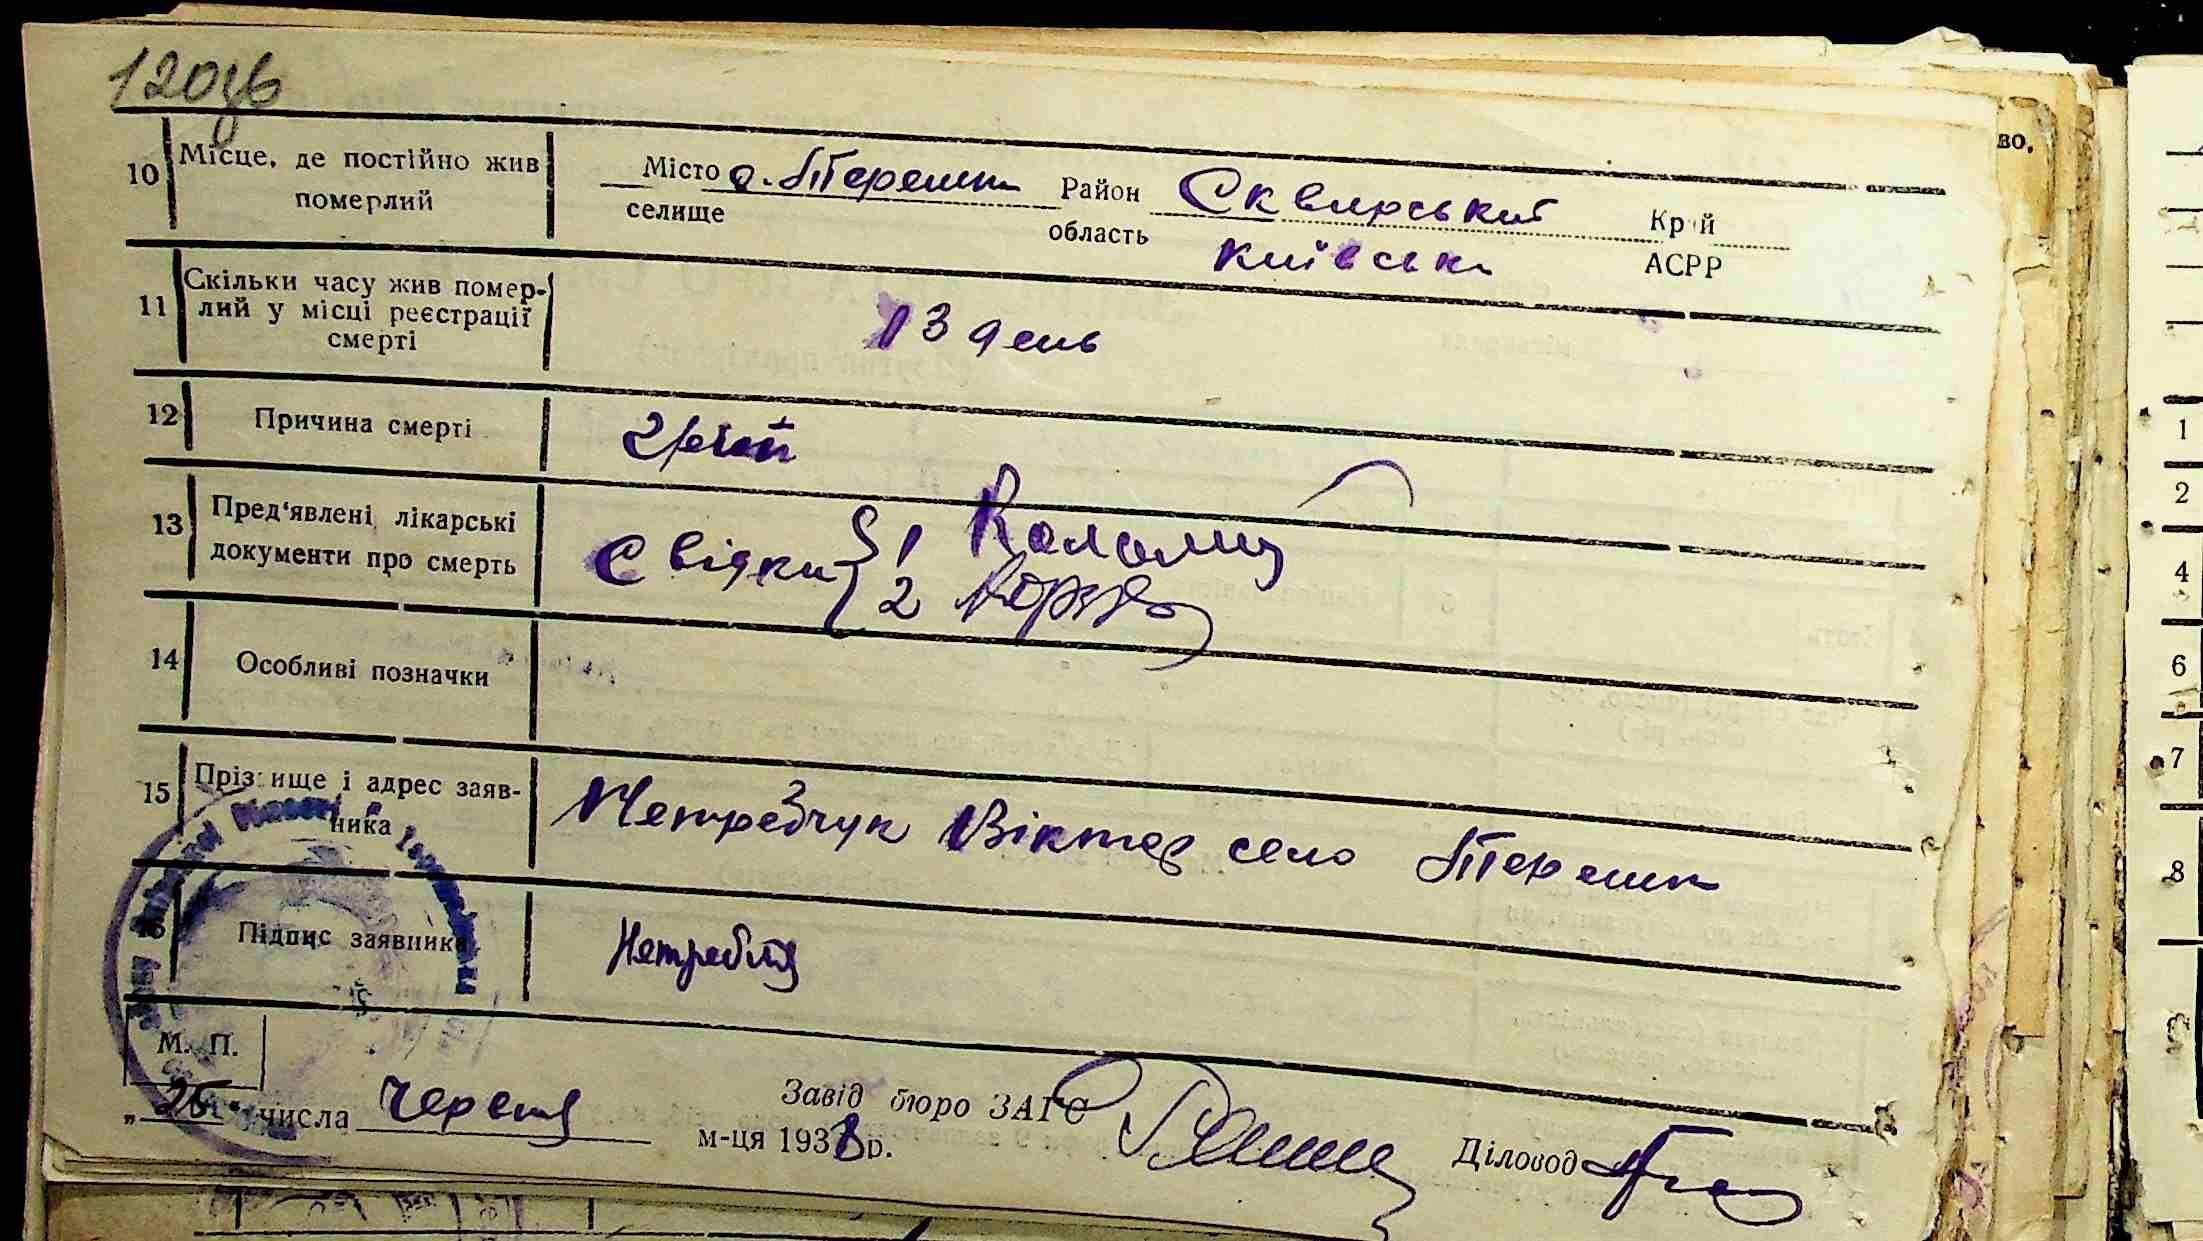 120зв
10 Місце, де постійно жив померлий
Місто с. Терешки Район Сквирський Край
селище область Київська АСРР
11 Скільки часу жив помер-
лий у місці реєстрації
смерті
13 день
12 Причина смерті
13 Пред'явлені лікарські
документи про смерть
Свідки { 1 Коломиц
2
14 Особливі позначки
15 Прізвище і адрес заяв-
ника
Нетребчук Віктор село Терешки
16 Підпис заявника
М. П.
„25“ числа червня м-ця 1933 р.
Завід бюро ЗАГС
Діловод
во.
1
2
4
6
7
8